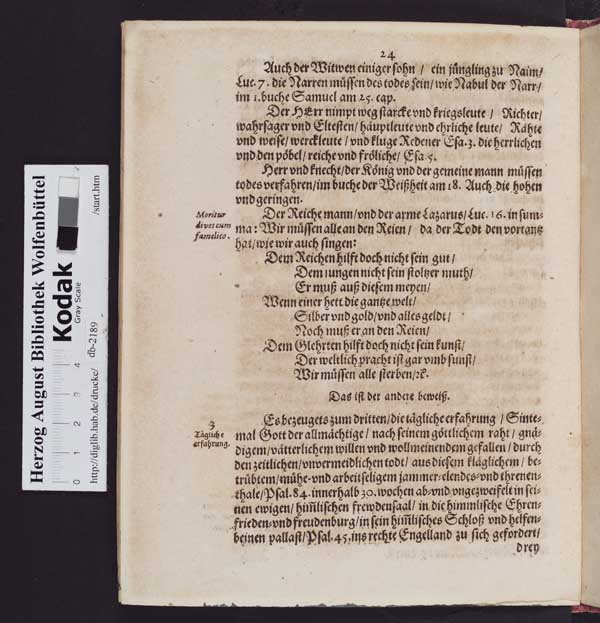 24
Auch der Witwen einiger sohn / ein jüngling zu Naim/
Luc. 7. die Narren müssen des todes sein/ wie Nabul der Narr/
im 1. buche Samuel am 25. cap.
Der HErr nimpt weg starcke vnd kriegsleute / Richter/
wahrsager vnd Eltesten/ häuptleute vnd ehrliche leute/ Rähte
vnd weise/ werckleute / vnd kluge Redener Esa. 3. die herrlichen
vnd den pöbel/ reiche vnd fröliche/ Esa 5.
Herr vnd knecht/ der König vnd der gemeine mann müssen
todes verfahren/ im buche der Weißheit am 18. Auch die hohen
vnd geringen.
Moritur
dives cum
famelico.
Der Reiche mann/ vnd der arme Lazarus/ Luc. 16. in sum-
ma: Wir müssen alle an den Reien/ da der Todt den vortantz
hat/ wie wir auch singen:
Dem Reichen hilft doch nicht sein gut/
Dem jungen nicht sein stoltzer muth/
Er muß auß diesem meyen/
Wenn einer hett die gantze welt/
Silber vnd gold/ vnd alles geldt/
Noch muß er an den Reien/
Dem Glehrten hilft doch nicht sein kunst/
Der weltlich pracht ist gar vmb sunst/
Wir müssen alle sterben/ ꝛc.
Das ist der andere beweiß.
3
Tägliche
erfahrung.
Es bezeugets zum dritten/ die tägliche erfahrung / Sinte-
mal Gott der allmächtige / nach seinem göttlichem raht/ gnä-
digem/ vätterlichem willen vnd wollmeinendem gefallen / durch
den zeitlichen/ vnvermeidlichen todt/ aus diesem kläglichem/ be-
trübtem/ mühe- vnd arbeitseligem jammer- elendes- vnd threnen-
thale/ Psal. 84. innerhalb 30. wochen ab- vnd vngezweifelt in sei-
nen ewigen/ him̃lischen frewdensaal/ in die himmlische Ehren-
frieden- vnd freudenburg/ in sein him̃lisches Schloß vnd helfen-
beinen pallast/ Psal. 45, ins rechte Engelland zu sich gefordert/
drey
Herzog August Bibliothek Wolfenbüttel
Kodak
Gray Scale
http://diglib.hab.de/drucke/ db-2189 /start.htm
0 1 2 3 4